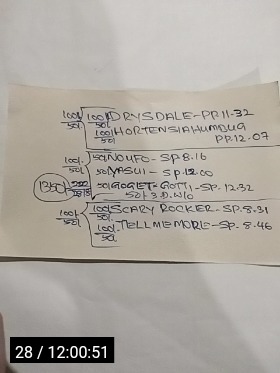 100% 100% DRYSDALE-PP.11-32
50% 50%
100% HORTENSIAHUMBUG
50% PP.12.07
100% 50% NOUFO-SP.8.16
50% 50% YASUI-SP.12.00
1350 50% GOGIET-GOTTI-SP.12.32
52% 3.D.W/O
100% 100% SCARY ROCKER-SP.8.31
50% 50%
100% TELLMEMORE-SP.8.46
50%
28 / 12:00:51